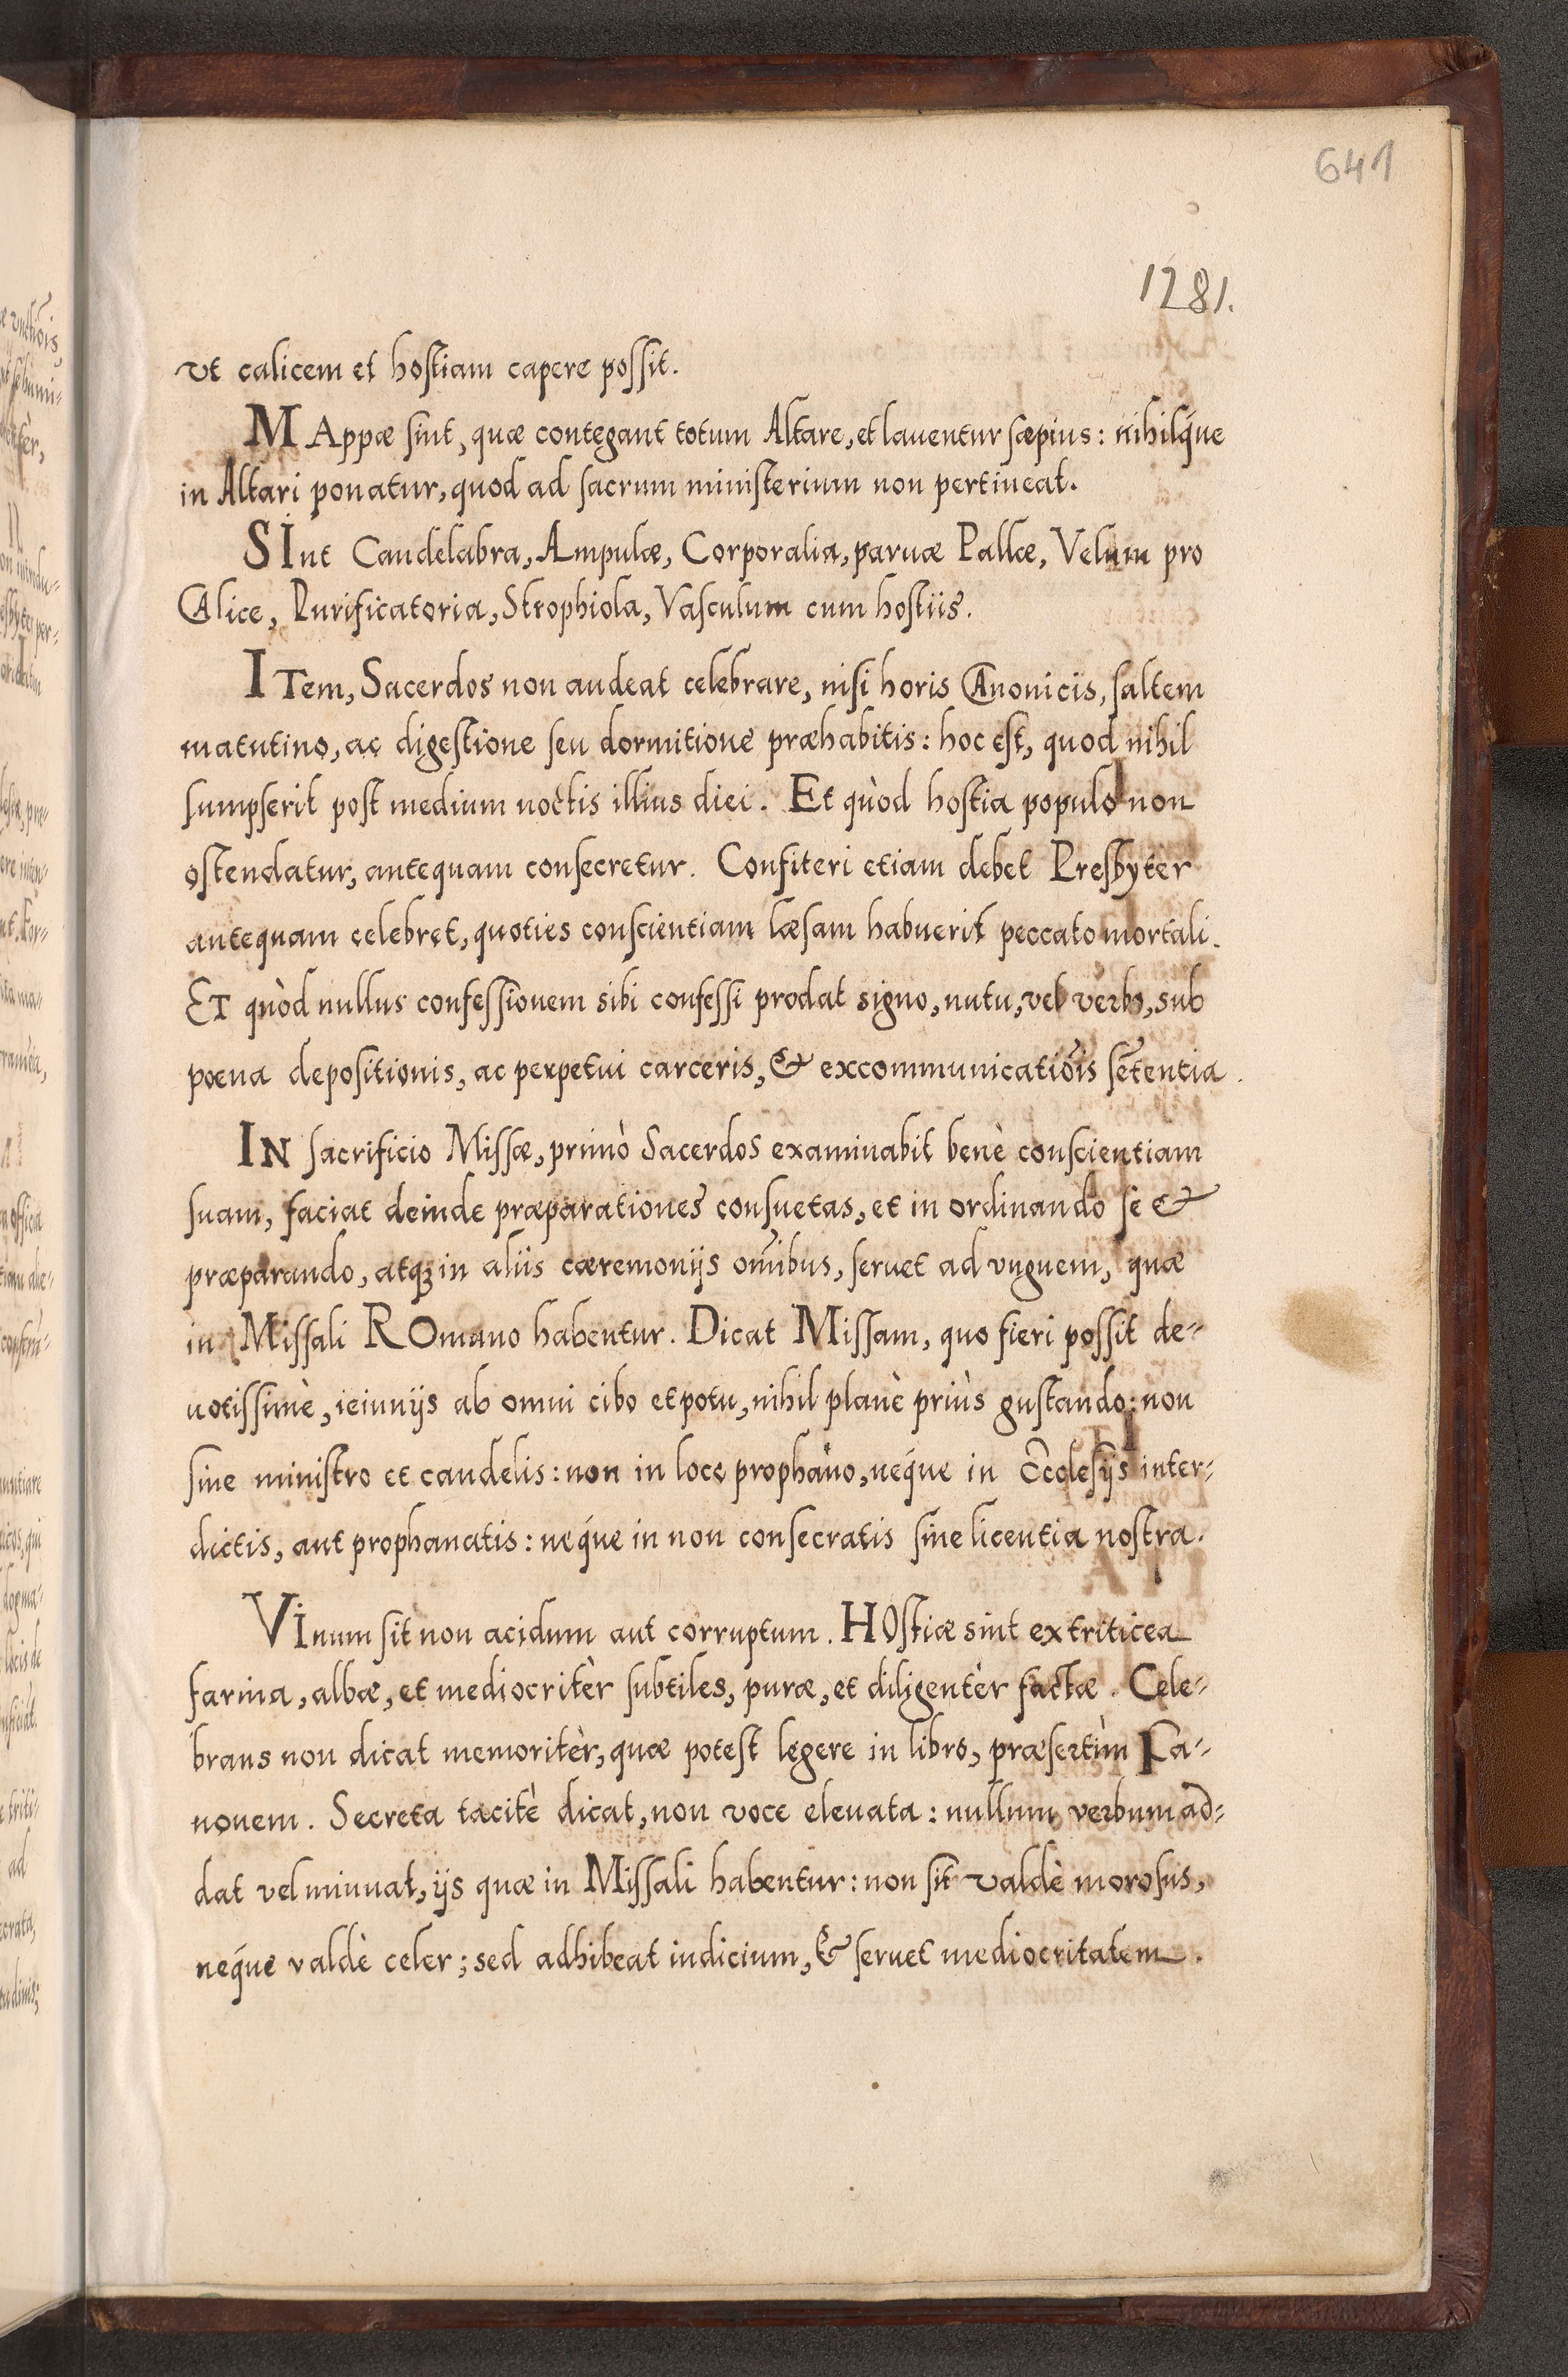 641
1281.
vt calicem et hostiam capere possit.
MAppæ sint, quæ contegant totum Altare, et lauentur sæpius: nihilq́ue
in Altari ponatur, quod ad sacrum ministerium non pertineat.
SInt Candelabra, Ampulæ, Corporalia, paruæ Pallæ, Velum pro
CAlice, Purificatoria, Strophiola, Vasculum cum hostiis.
ITem, Sacerdos non audeat celebrare, nisi horis CAnonicis, saltem
matutino, ac digestione seu dormitione præhabitis: hoc est, quod nihil
sumpserit post medium noctis illius diei. Et quòd hostia populo non
ostendatur, antequam consecretur. Confiteri etiam debet Presbyter
antequam celebret, quoties conscientiam læsam habuerit peccato mortali.
ET quòd nullus confessionem sibi confessi prodat signo, nutu, vel verbo, sub
poena depositionis, ac perpetui carceris, & excommunicatiōis sētentia.
IN sacrificio Missæ, primò Sacerdos examinabit benè conscientiam
suam, faciat deinde præparationes consuetas, et in ordinando se &
præparando, atqꝫ in aliis cæremonijs om̄ibus, seruet ad vnguem, quæ
in Missali ROmano habentur. Dicat Missam, quo fieri possit de-
uotissimè, ieiunijs ab omni cibo et potu, nihil planè priùs gustando: non
sine ministro et candelis: non in loco prophano, neq́ue in Ecclesijs inter-
dictis, aut prophanatis: neq́ue in non consecratis sine licentia nostra.
VInum sit non acidum aut corruptum. HOstiæ sint ex triticea
farina, albæ, et mediocritèr subtiles, puræ, et diligentèr factæ. Cele-
brans non dicat memoritèr, quæ potest legere in libro, præsertìm Ka-
nonem. Secreta tacitè dicat, non voce eleuata: nullum verbum ad-
dat vel minuat, ijs quæ in Missali habentur: non sit valdè morosus,
neq́ue valdè celer; sed adhibeat iudicium, & seruet mediocritatem.